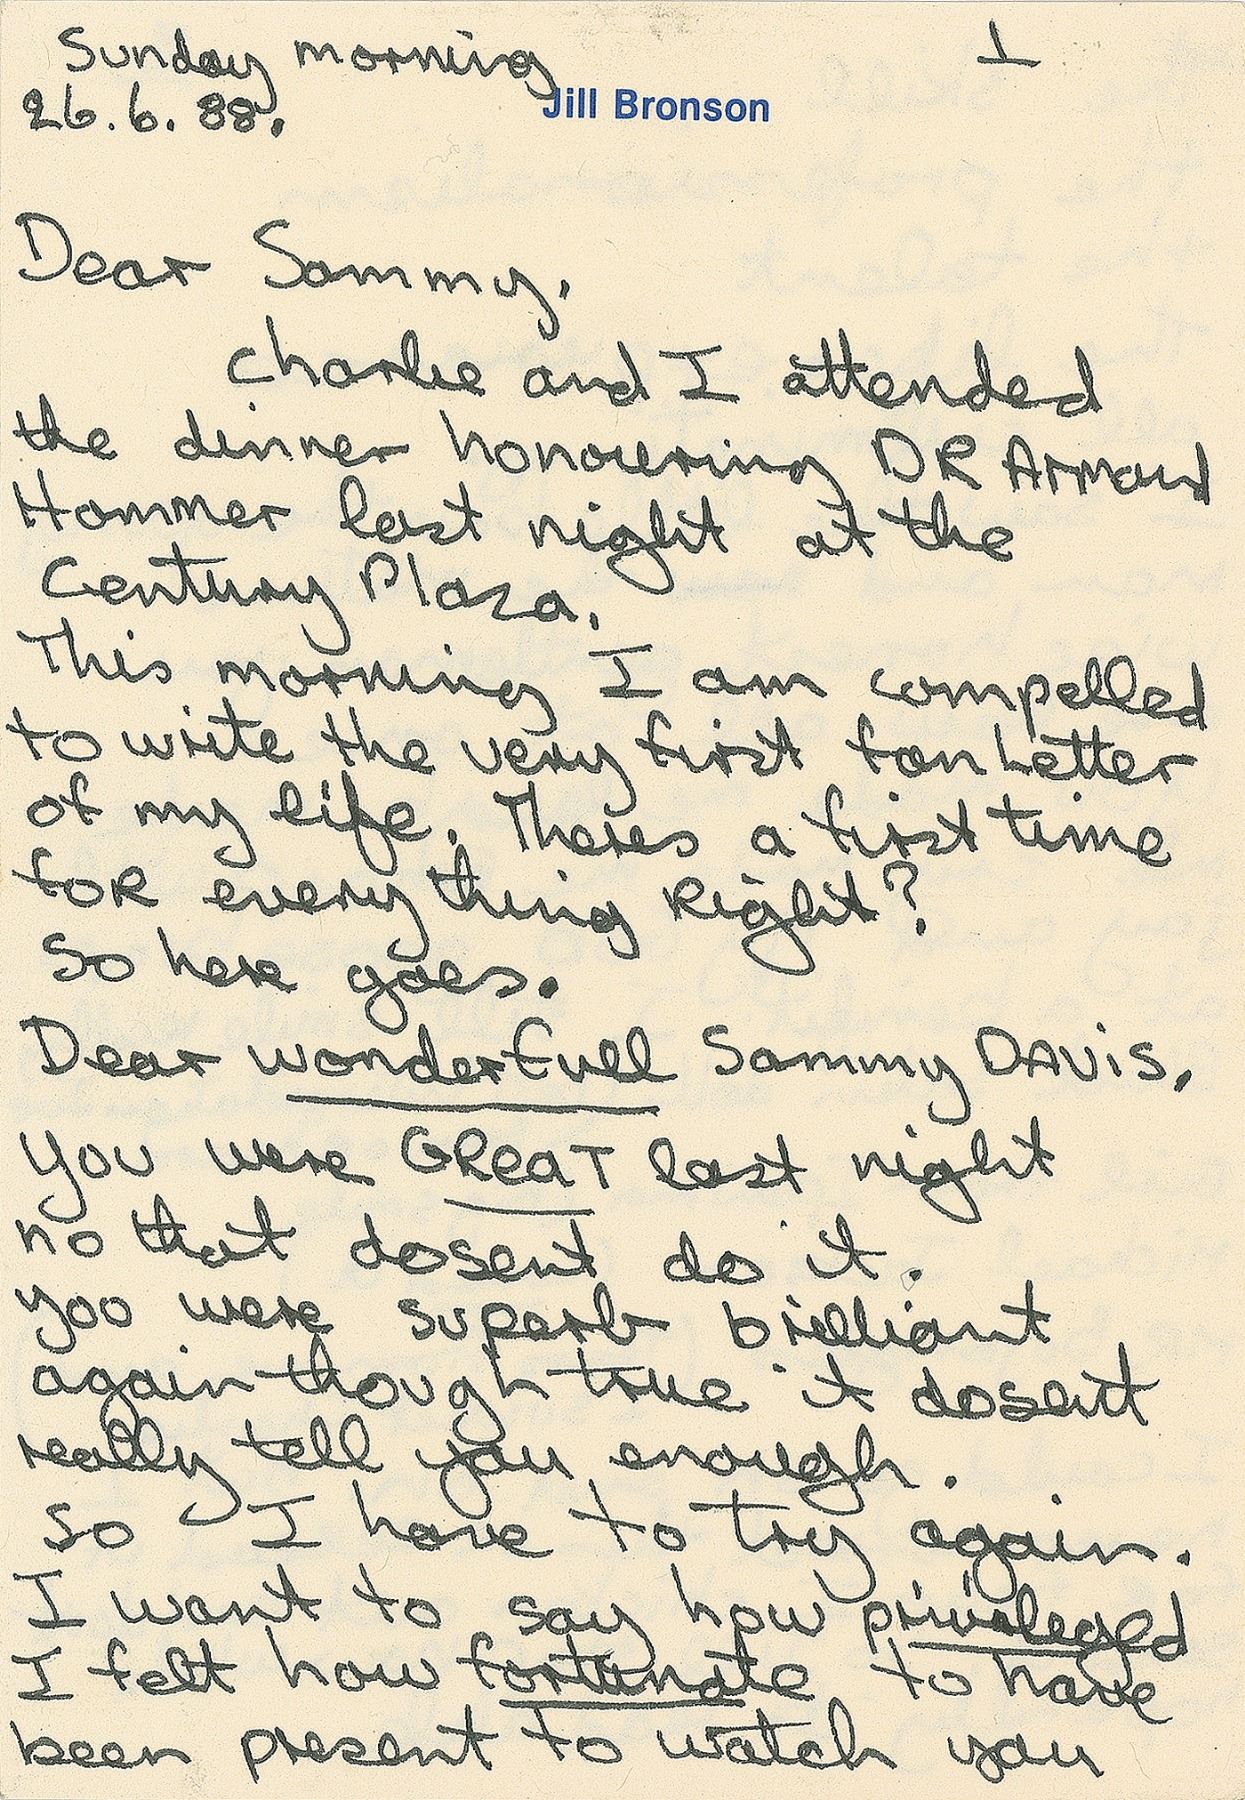 Sunday morning 1
26.6.88.
Jill Bronson
Dear Sammy.
Charlie and I attended
the dinner honouring DR Armand
Hammer last night at the
Century Plaza.
This morning I am compelled
to write the very first fan Letter
of my life. Theres a first time
foR everything Right?
So here goes.
Dear wonderfull Sammy DAViS.
you were GReaT last night
no that dosent do it.
you were superb brilliant
again though true it dosent
really tell you enough.
so I have to try again.
I want to say how privileged
I felt how fortunate to have
been present to watch you